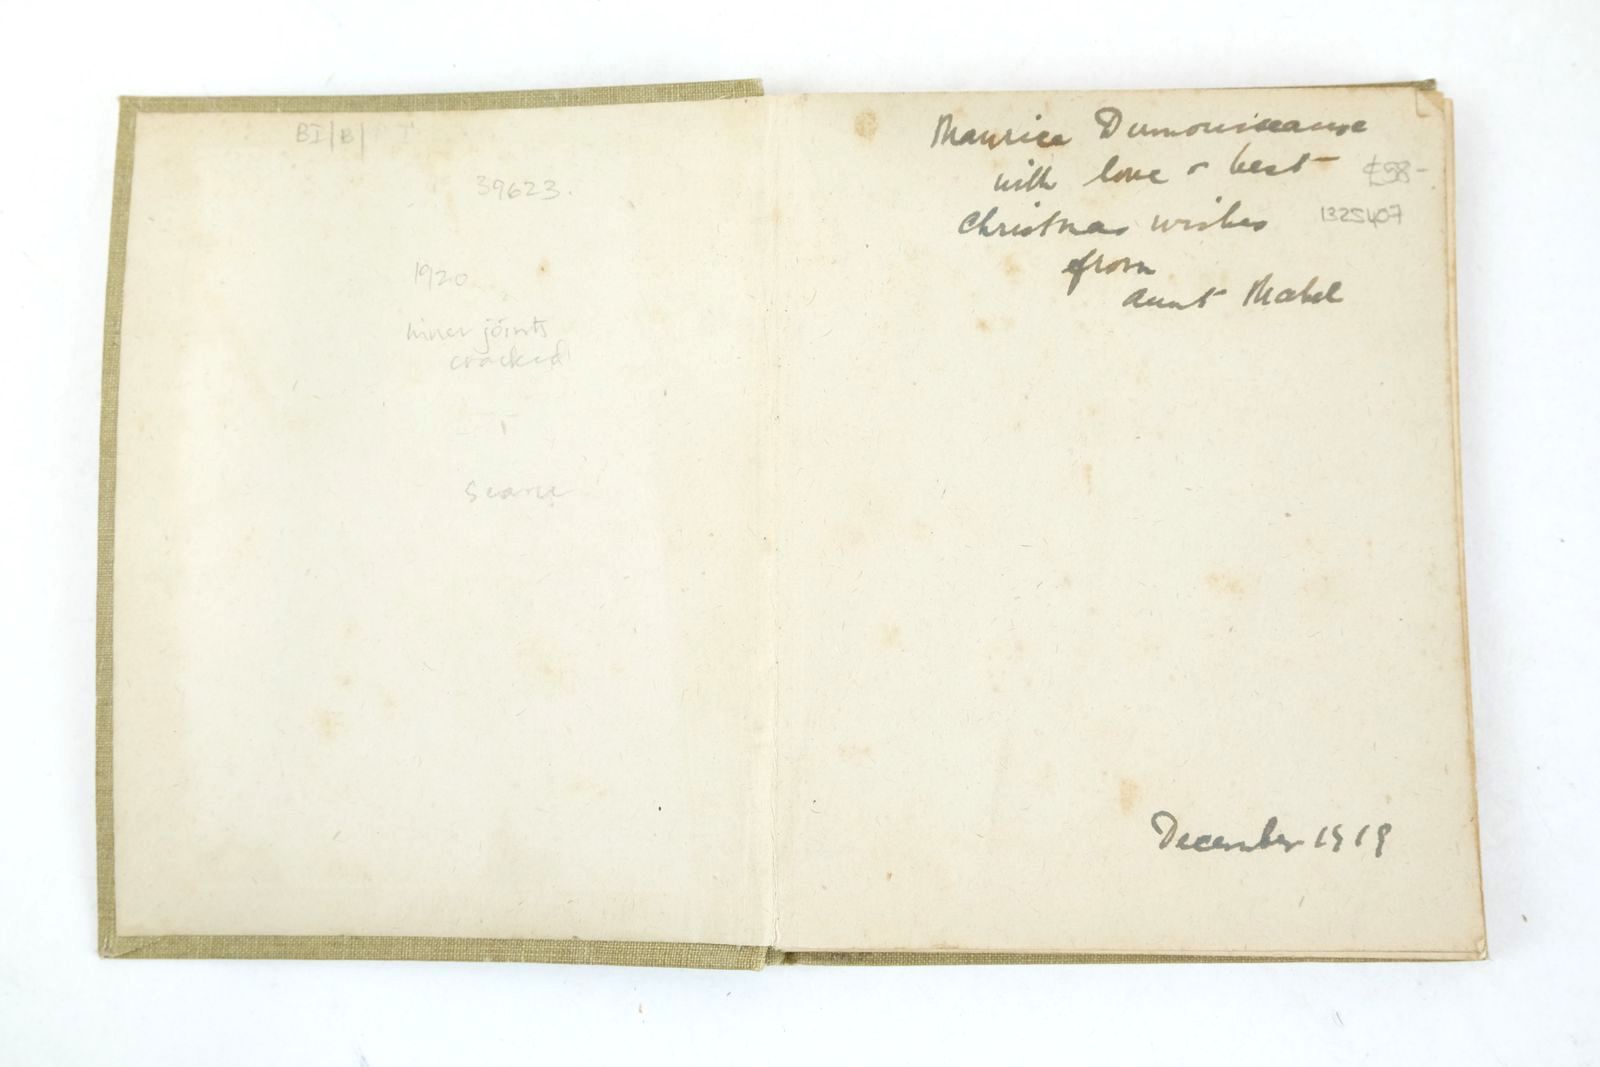 BI/B/
39623.
1920
inner joints
cracked
Scarce
Maurice
with love & best
Christmas wishes
from
Aunt Mabel
£38-
1325407
December 1919